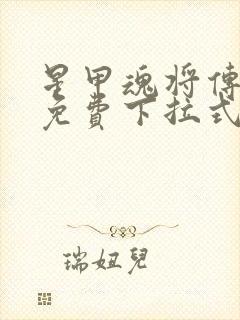 星甲魂将傳
免費下拉式
瑞妞兒